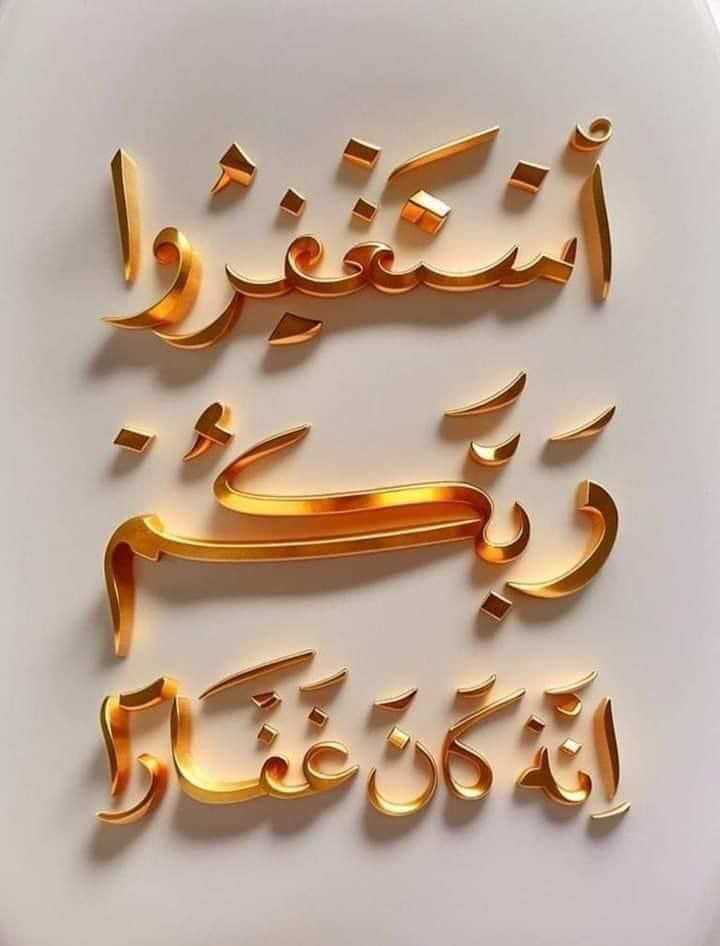 أستغفروا
ربكم
انه كان غفارا